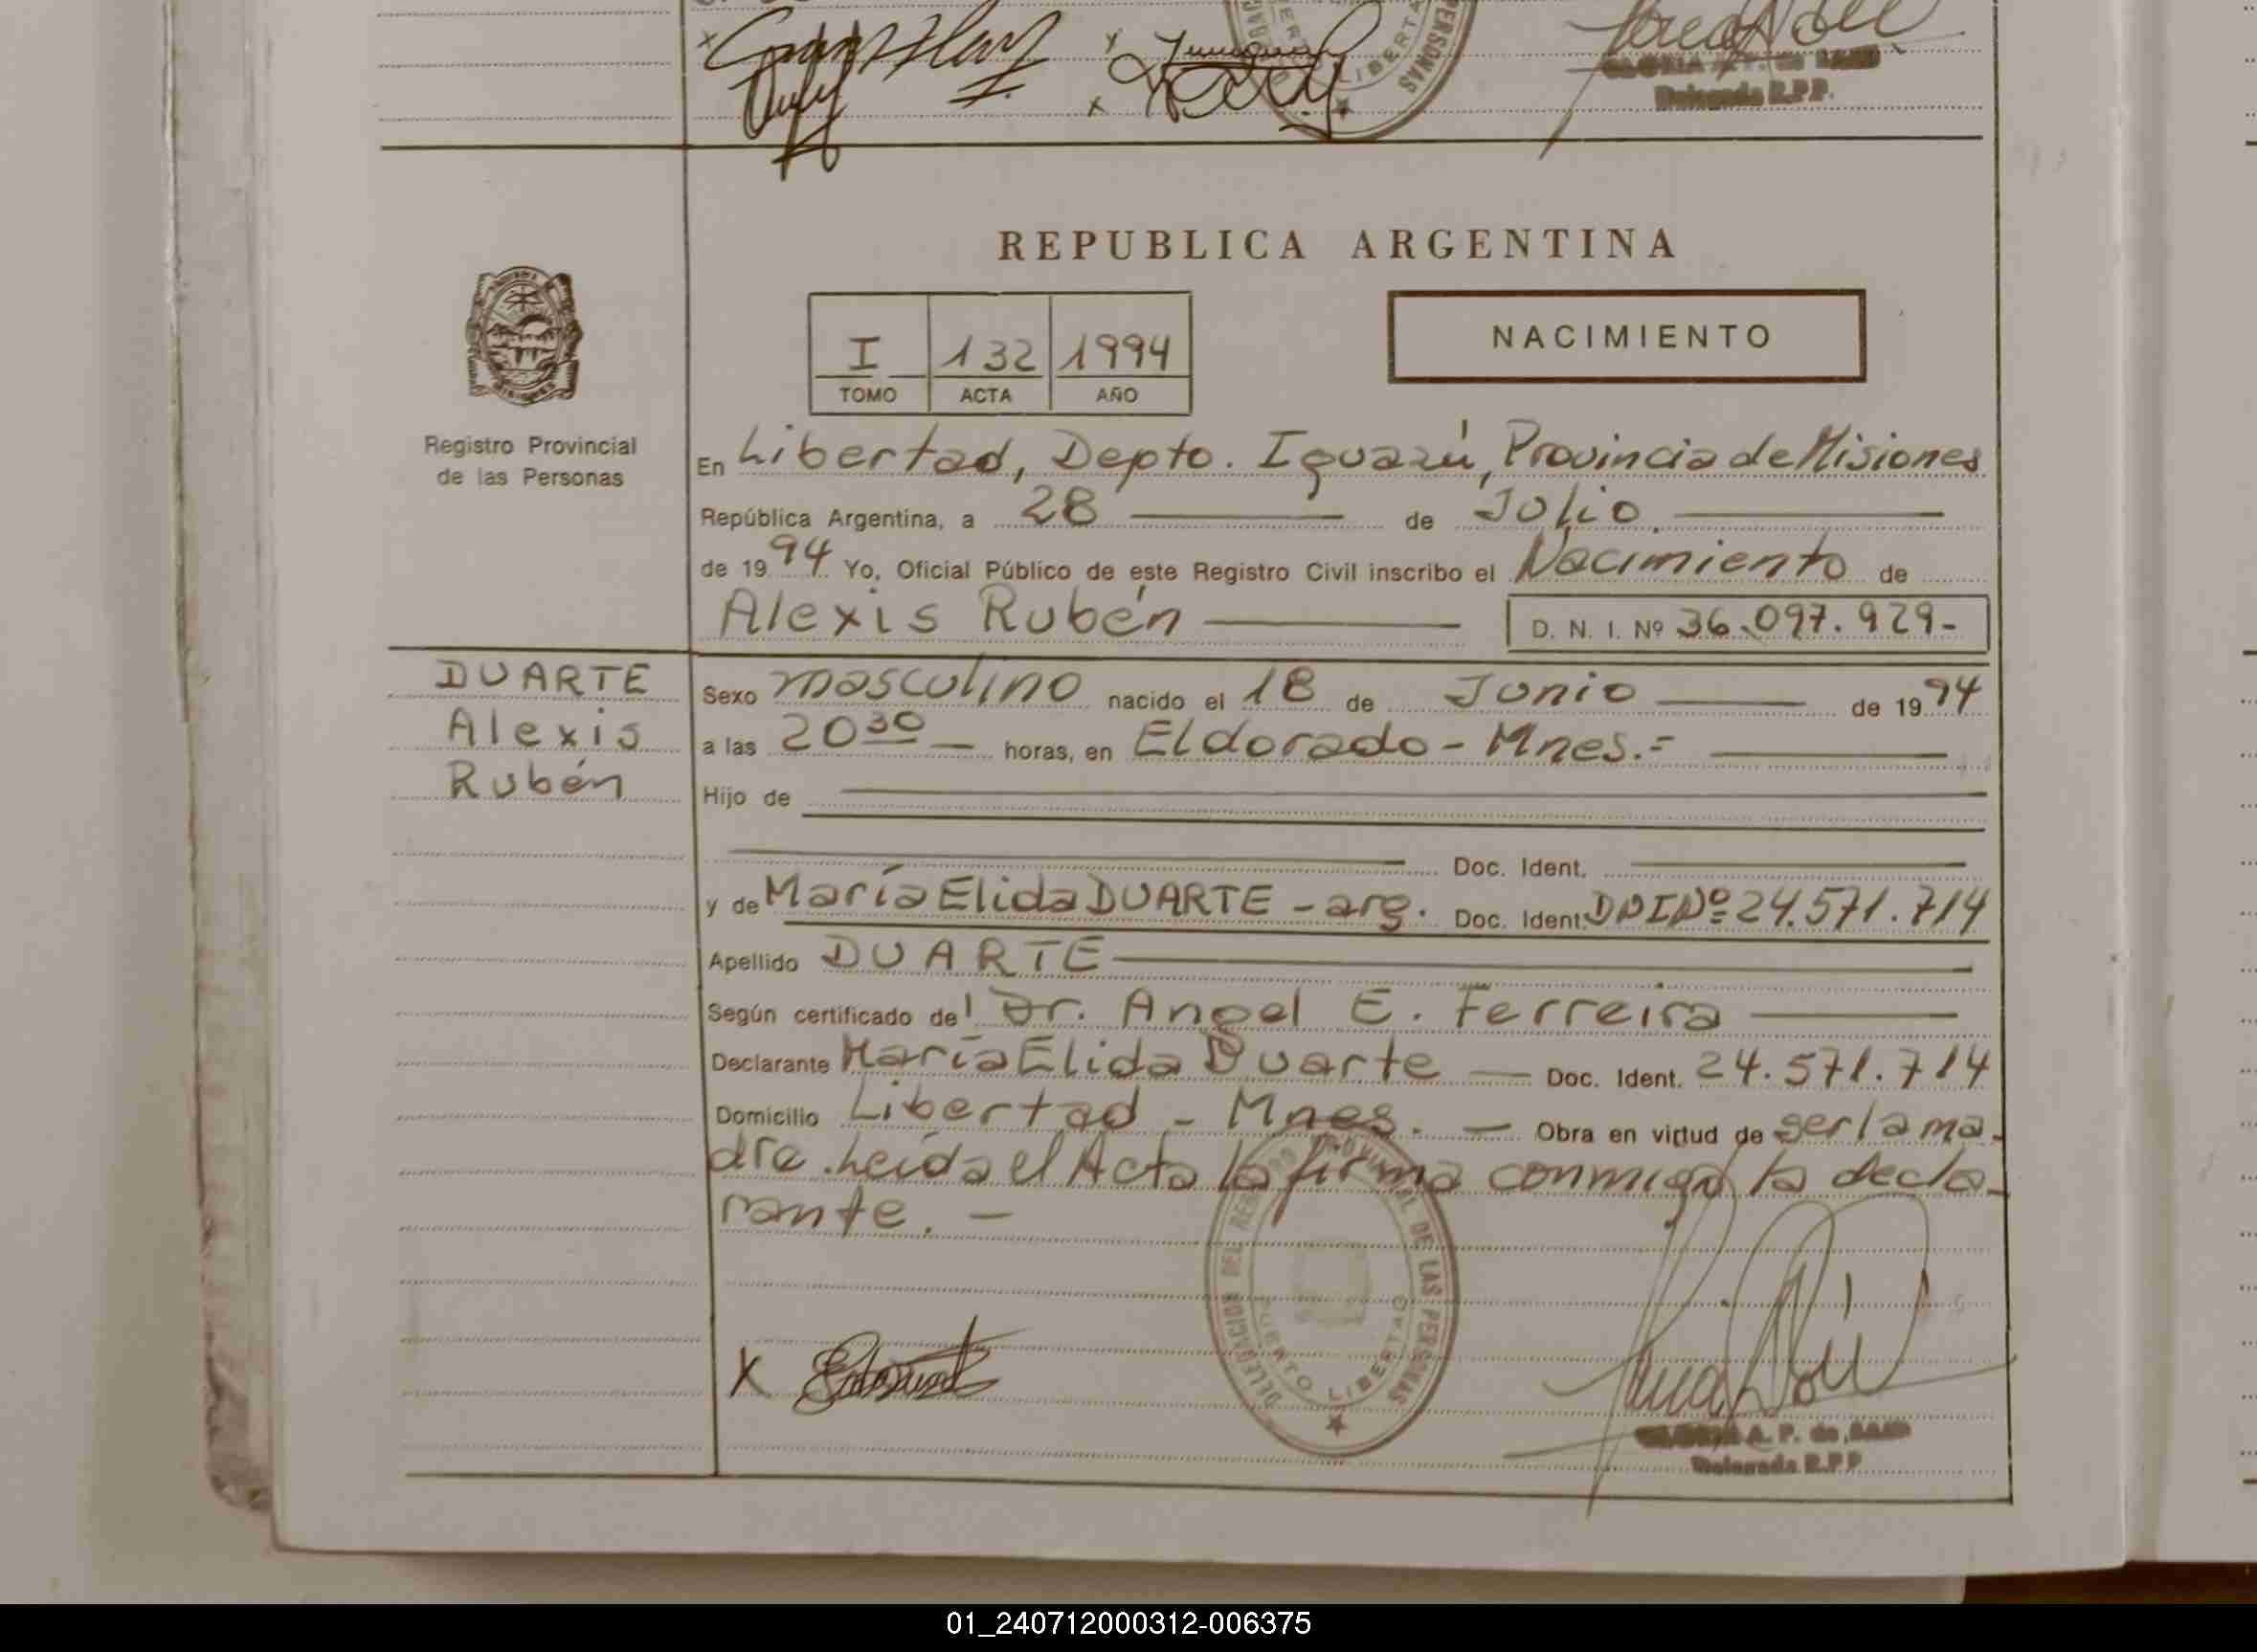 GLORIA A. P. de SAND
Delegada R.P.P.
REPUBLICA ARGENTINA
I 132 1994
TOMO ACTA AÑO
NACIMIENTO
Registro Provincial
de las Personas
En Libertad, Depto. Iguazú, Provincia de Misiones
República Argentina, a 28 de Julio.
de 1994 Yo, Oficial Público de este Registro Civil inscribo el Nacimiento de
Alexis Rubén D. N. I. Nº 36.097.929-
DUARTE
Alexis
Rubén
Sexo masculino nacido el 18 de Junio de 1994
a las 20 30 horas, en Eldorado - Mnes.=
Hijo de
Doc. Ident.
y de María Elida DUARTE - arg. Doc. Ident. DNI Nº 24.571.714
Apellido DUARTE
Según certificado del Dr. Angel E. Ferreira
Declarante María Elida Duarte Doc. Ident. 24.571.714
Domicilio Libertad - Mnes. Obra en virtud de ser la ma-
dre. Leída el Acta la firma conmigo la decla-
rante. -
DELEGACION DEL REGISTRO PROVINCIAL DE LAS PERSONAS
PUERTO LIBERTAD
X
A. P. de SAND
Delegada R.P.P
01_240712000312-006375